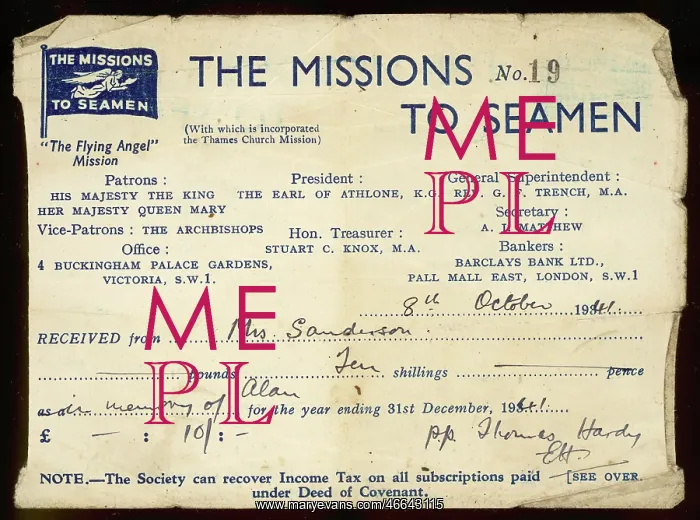 THE MISSIONS
TO SEAMEN
"The Flying Angel"
Mission
THE MISSIONS No. 19
TO SEAMEN
(With which is incorporated
the Thames Church Mission)
Patrons :
HIS MAJESTY THE KING
HER MAJESTY QUEEN MARY
President :
THE EARL OF ATHLONE, K.G.
General Superintendent :
REV. G. F. TRENCH, M.A.
Vice-Patrons : THE ARCHBISHOPS
Hon. Treasurer :
STUART C. KNOX, M.A.
Secretary :
A. J. MATTHEW
Office :
4 BUCKINGHAM PALACE GARDENS,
VICTORIA, S.W.1.
Bankers :
BARCLAYS BANK LTD.,
PALL MALL EAST, LONDON, S.W.1
8th October 1941
RECEIVED from Mrs Sanderson.
pounds Ten shillings pence
as in memory of Alan for the year ending 31st December, 1941
£ — : 10/ : -
p.p. Thomas Hardy
NOTE.—The Society can recover Income Tax on all subscriptions paid [SEE OVER.
under Deed of Covenant.
ME
PL
ME
PL
www.maryevans.com/46643115